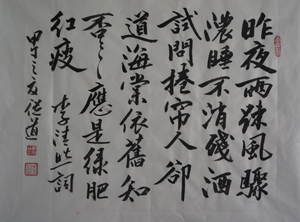 昨夜雨踈風驟
濃睡不消殘酒
試問捲帘人卻
道海棠依舊知
否知否應是緑肥
紅瘦 李清照詞
甲午之夏 道